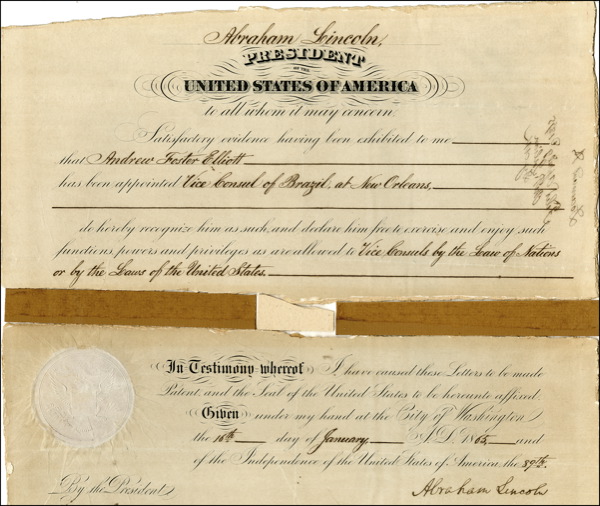 Abraham Lincoln,
PRESIDENT
OF THE
UNITED STATES OF AMERICA
to all whom it may concern.
Satisfactory evidence having been exhibited to me
that Andrew Foster Elliott
has been appointed Vice Consul of Brazil, at New Orleans,
do hereby recognize him as such, and declare him free to exercise and enjoy such
functions, powers and privileges as are allowed to Vice Consuls by the Law of Nations
or by the Laws of the United States.
In Testimony whereof I have caused these Letters to be made
Patent, and the Seal of the United States to be hereunto affixed.
Given under my hand at the City of Washington
the 16th day of January A.D. 1865, and
of the Independence of the United States of America, the 89th.
By the President
Abraham Lincoln